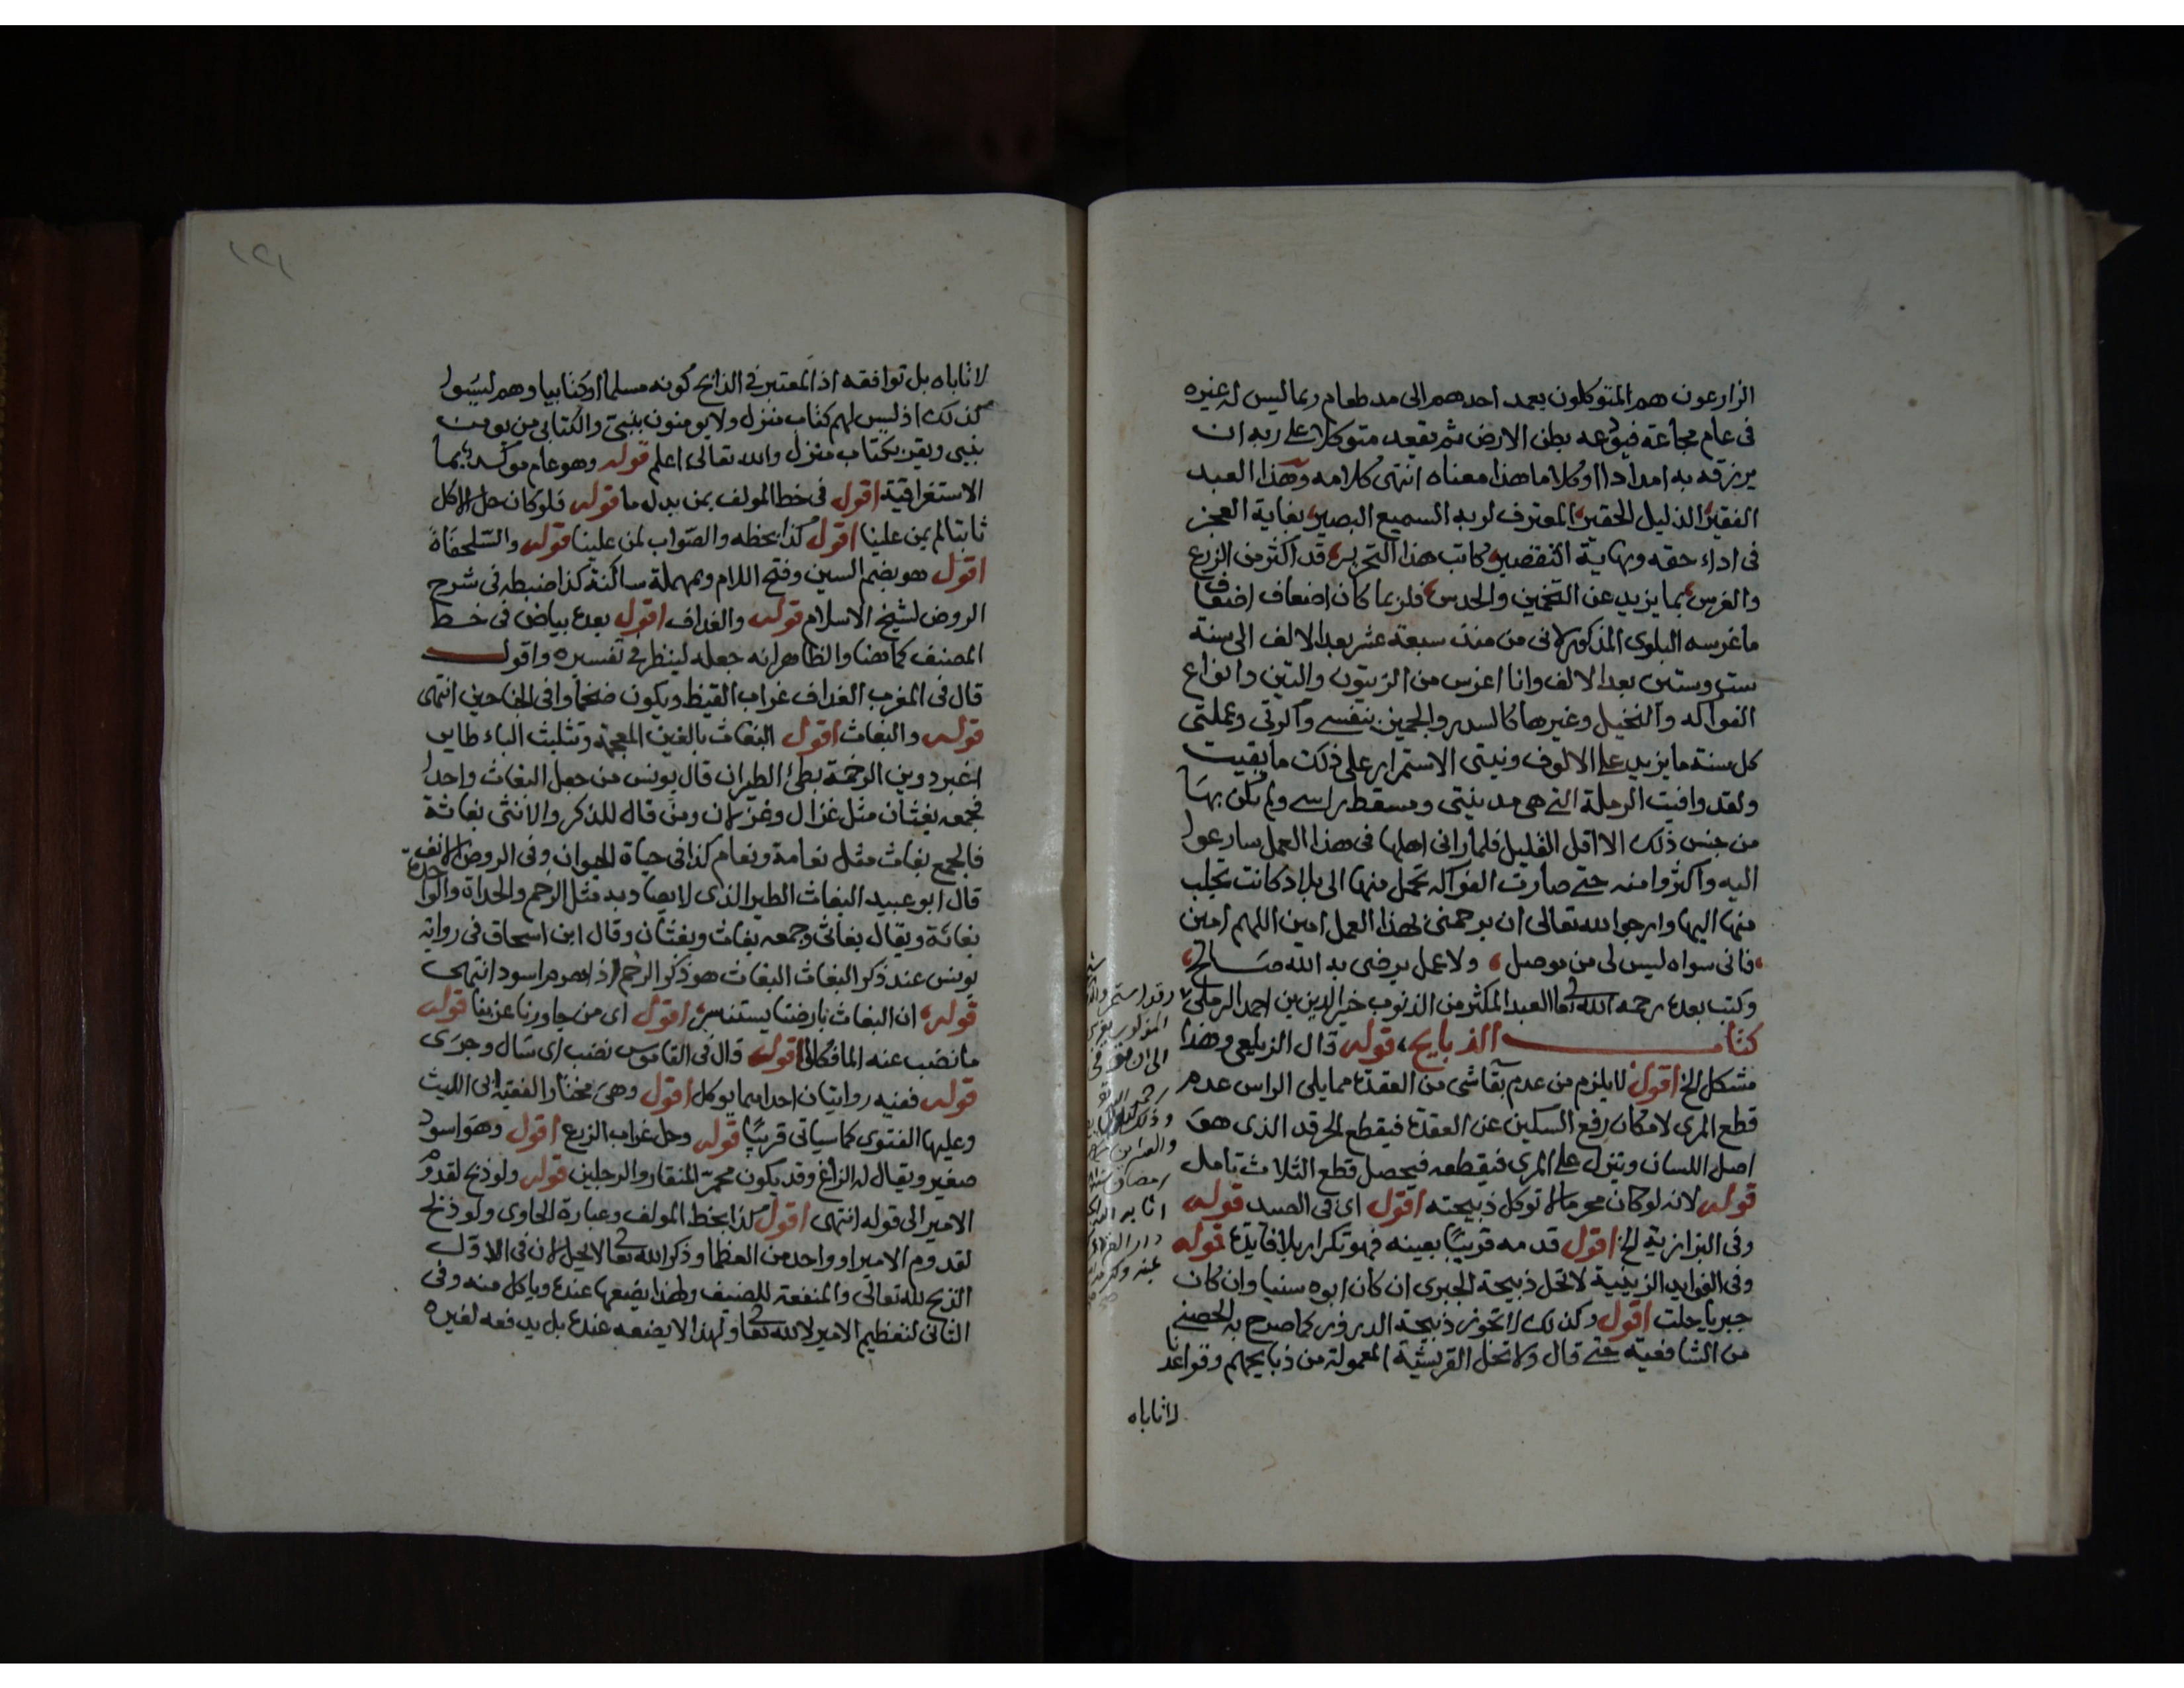 الزارعون هم المتوكلون يعمد احدهم الى مد طعام ربما ليس له غيره
في عام مجاعة فيودعه بطن الارض ثم يقعد متوكلا على ربه ان
يرزقه به امدادا او كلاما هذا معناه انتهى كلامه وهذا العبد
الفقير الذليل الحقير المعترف لربه السميع البصير بغاية العجز
في اداء حقه ونهاية التقصير كاتب هذا التحرير قد اكثر من الزرع
والغرس بما يزيد عن التخمين والحدس فلربما كان اضعاف اضعاف
ما غرسه البلوى المذكور لانى من منذ سبعة عشر بعد الالف الى سنة
ست وستين بعد الالف وانا اغرس من الزيتون والتين وانواع
الفواكه والنخيل وغيرها كالسدر والجميز بنفسي واكرتي وعملتي
كل سنة ما يزيد على الالوف ونيتى الاستمرار على ذلك ما بقيت
ولقد وافيت الرملة التي هي مدينتي ومسقط راسي ولم يكن بها
من جنس ذلك الا اقل القليل فلما راني اهلها في هذا العمل سارعوا
اليه واكثروا منه حتى صارت الفواكه تحمل منها الى بلاد كانت تجلب
منها اليها وارجو الله تعالى ان يرحمني لهذا العمل امين اللهم امين
فاني سواه ليس لي من موصل ولا عمل يرضى به الله صالح
وكتب بعده رحمه الله تعا العبد المكثر من الذنوب خير الدين بن احمد الرملي
كتاب الذبايح قوله قال الزيلعي وهذا
مشكل الخ اقول لا يلزم من عدم بقاشى من العقدة مما يلي الراس عدم
قطع المرى لامكان رفع السكين عن العقدة فيقطع الحرقد الذى هو
اصل اللسان وينزل على المرى فيقطعه فيحصل قطع الثلاث تامل
قوله لانه لو كان محرما لا توكل ذبيحته اقول اى في الصيد قوله
وفى البزازية الخ اقول قدمه قريبا بعينه فهو تكرار بلا فايدة قوله
وفي الفوايد الزينية لا تحل ذبيحة الجبرى ان كان ابوه سنيا وان كان
جبريا حلت اقول وكذلك لا تجوز ذبيحة الدروز كما صرح به الحصني
من الشافعية حتى قال ولا تحل القريشة المعمولة من ذبايحهم وقواعدنا
لا تاباه
وقد استمر
الى ان
وذلك
والعشرين
رمضان
اثابه الله
١٢١
لا تاباه بل توافقه اذ المعتبر في الذابح كونه مسلما او كتابيا وهم ليسوا
كذلك اذ ليس لهم كتاب منزل ولا يومنون بنبي والكتابي من يومن
بنبي ويقر بكتاب منزل والله تعالى اعلم قوله وهو عام موكد بما
الاستغراقية اقول في خط المولف بمن بدل ما قوله فلو كان حل الاكل
ثابتا لم يمن علينا اقول كذا بخطه والصواب لمن علينا قوله والسلحفاة
اقول هو بضم السين وفتح اللام وبمهملة ساكنة كذا ضبطه في شرح
الروض لشيخ الاسلام قوله والغداف اقول بعده بياض في خط
المصنف كما هنا والظاهر انه جعله لينظر في تفسيره واقول
قال في المغرب الغداف غراب القيظ ويكون ضخما وافي الجناحين انتهى
قوله والبغاث اقول البغاث بالغين المعجمة وتثليث الباء طاير
اغبر دوين الرخمة بطئ الطيران قال يونس من جعل البغاث واحدا
فجمعه بغثان مثل غزال وغزلان ومن قال للذكر والانثى بغاثة
فالجمع بغاث مثل نعامة ونعام كذا في حياة الحيوان وفي الروض الانف
قال ابو عبيد البغاث الطير الذى لا يصاد به مثل الرخم والحداة والواحدة
بغاثة ويقال بغاث وجمعه بغاث وبغثان وقال ابن اسحاق في رواية
يونس عند ذكر البغاث البغاث هو ذكر الرخم اذا هرم اسود انتهى
قوله ان البغاث بارضنا يستنسر اقول اى من جاورنا عز بنا قوله
ما نضب عنه الما فكلوا اقول قال في القاموس نضب اى سال وجرى
قوله ففيه روايتان احداهما يوكل اقول وهي مختار الفقيه ابى الليث
وعليها الفتوى كما سياتى قريبا قوله وحل غراب الزرع اقول وهو اسود
صغير ويقال له الزاغ وقد يكون محمر المنقار والرجلين قوله ولو ذبح لقدوم
الامير الى قوله انتهى اقول كذا بخط المولف وعبارة الحاوى ولو ذبح
لقدوم الامير او واحد من العظما وذكر الله تعا لا يحل لان في الاول
الذبح لله تعالى والمنفعة للضيف ولهذا يضعها عنده وياكل منه وفى
الثانى لتعظيم الامير لا لله تعا ولهذا لا يضعه عنده بل يدفعه لغيره